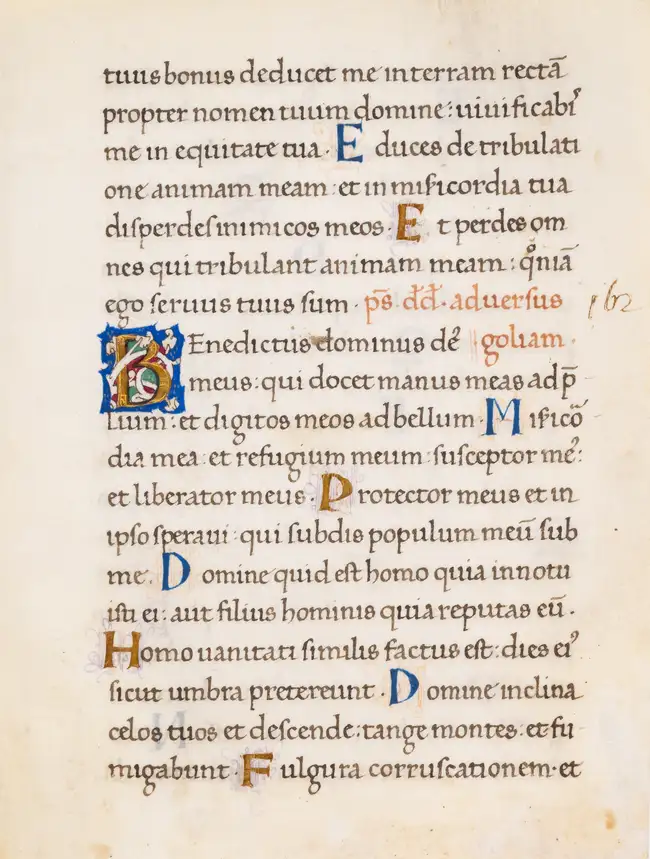 tuus bonus deducet me in terram rectā
propter nomen tuum domine: uiuificabiˀ
me in equitate tua. Educes de tribulati
one animam meam: et in mif̄icordia tua
disperdes inimicos meos. Et perdes om
nes qui tribulant animam meam: qn̊iā
ego seruus tuus sum. ps̄ dd̄. aduersus
BEnedictus dominus dēˀ goliam.
meus: qui docet manus meas ad p̄
lium: et digitos meos ad bellum. Mif̄icō
dia mea: et refugium meum: susceptor meˀ:
et liberator meus. Protector meus et in
ipso speraui: qui subdis populum meū sub
me. Domine quid est homo quia innotu
isti ei: aut filius hominis quia reputas eū.
Homo uanitati similis factus est: dies eiˀ
sicut umbra pretereunt. Domine inclina
celos tuos et descende: tange montes: et fu
migabunt. Fulgura corruscationem. et